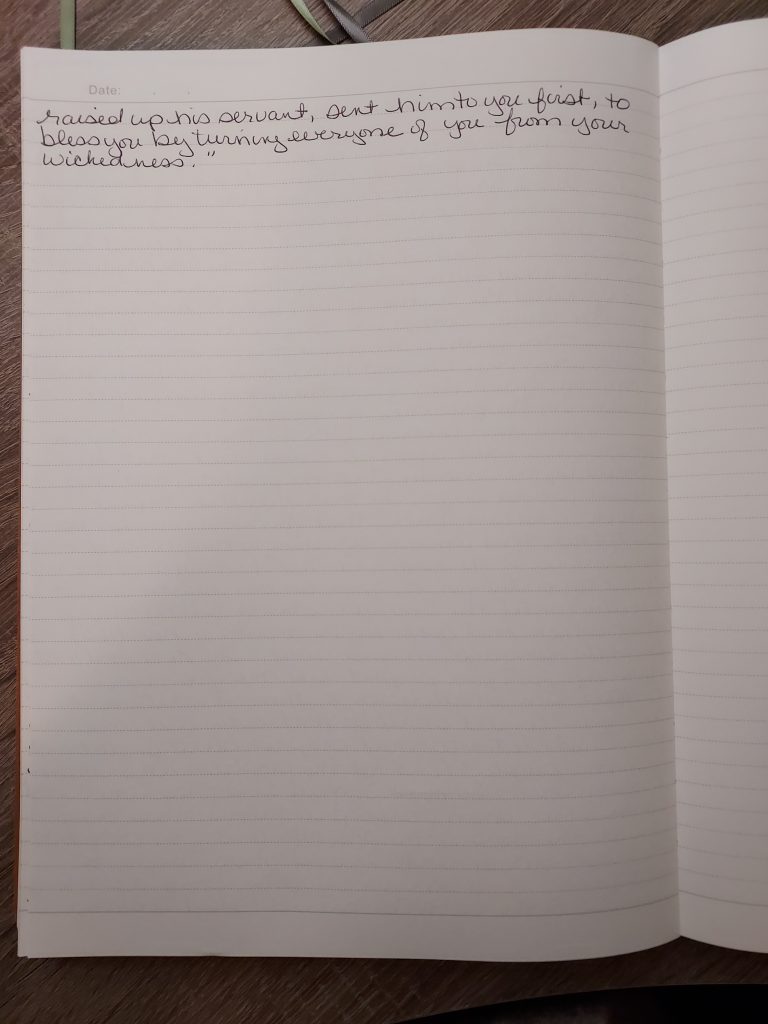 Date:
raised up his servant, sent him to you first, to
bless you by turning everyone of you from your
wickedness."